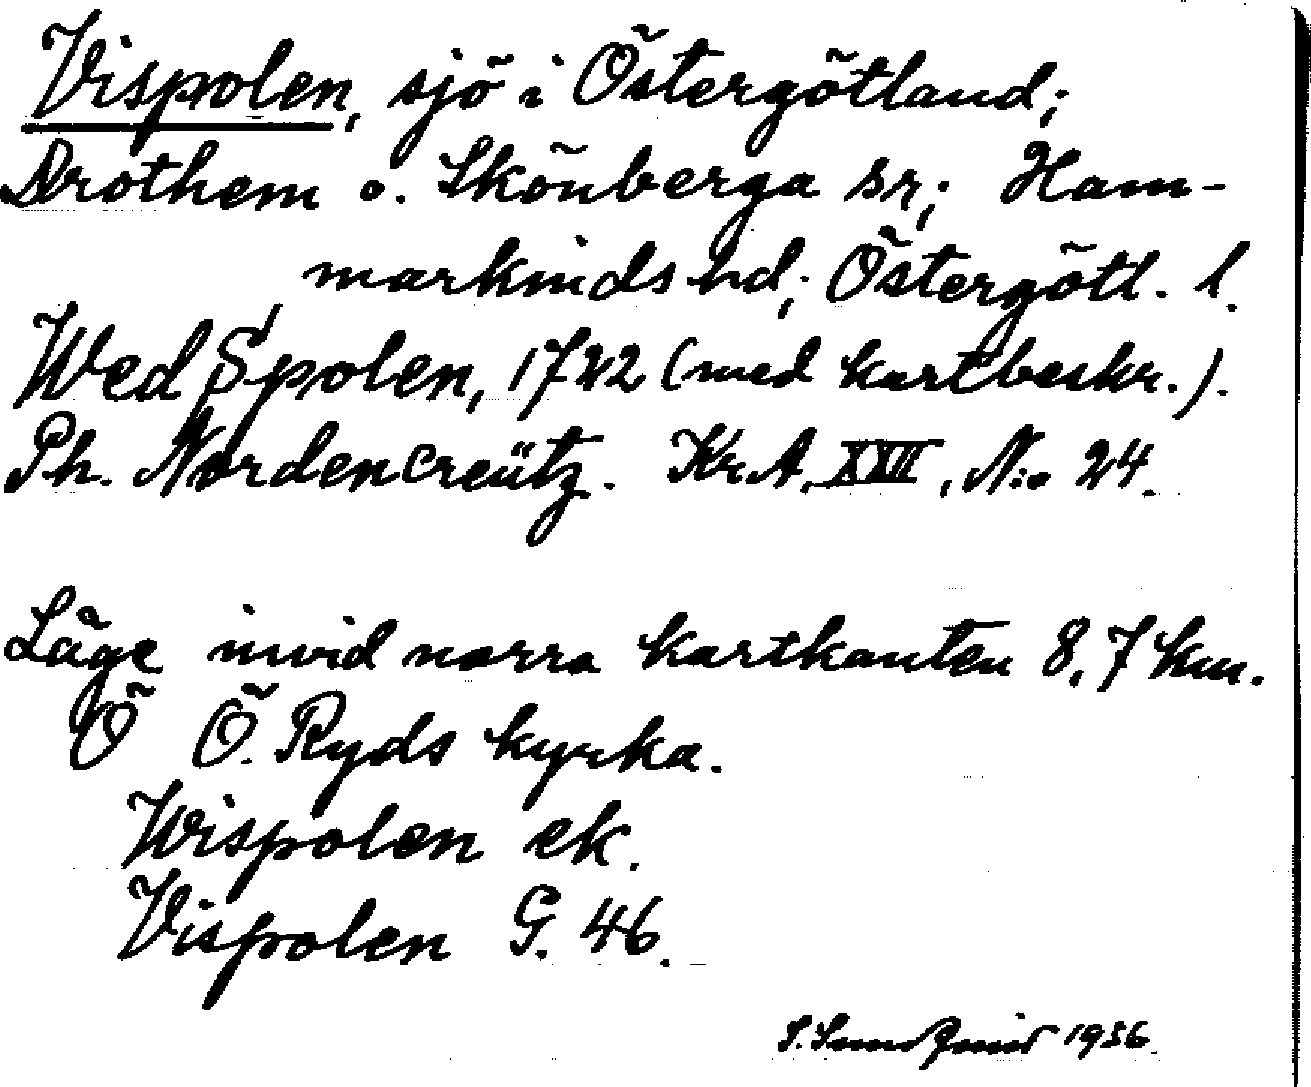 Vispolen, sjö i Östergötland;
Drothem o. Skönberga sr; Ham-
markinds hd; Östergötl. l.
Wed Spolen, 1742 (med kartbeskr.).
Ph. Nordencreütz. Kr.A. XVII, N:o 24.
Läge invid norra kartkanten 8,7 km.
Ö Ö. Ryds kyrka.
Wispolen ek.
Vispolen G. 46.
S. Sundquist 1936